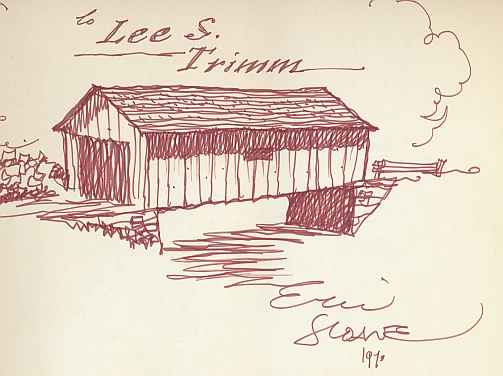 to Lee S.
Trimm
Eric
SLOANE
1970